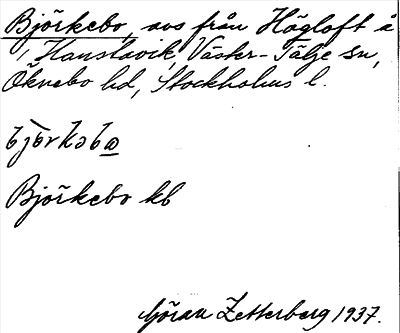 Björkebo, avs från Högloft å
Hanslavik, Väster-Tälje sn,
Öknebo hd, Stockholms l.
björkəbω
Björkebo kb
Göran Zetterberg 1937.